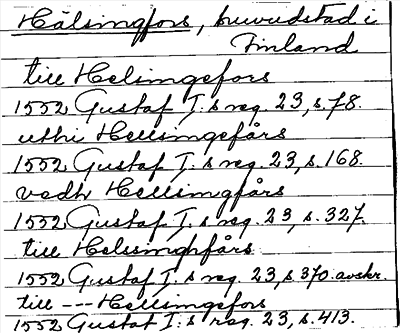 Hälsingfors, huvudstad i
Finland
till Helsingefors
1552 Gustaf I:s reg. 23, s. 78.
uthi Hellsingefårs
1552 Gustaf I:s reg. 23, s. 168.
vedh Hellsingfårs
1552 Gustaf I:s reg. 23, s. 327.
till Helssinghfårs
1552 Gustaf I:s reg. 23, s 370. avskr.
till --- Hellsingefors
1552 Gustaf I:s reg. 23, s. 413.